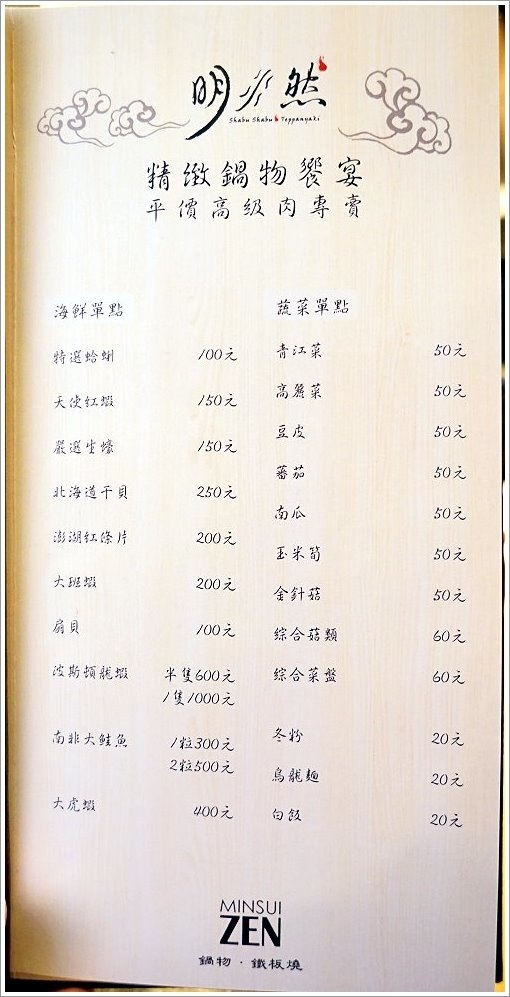 明水然
Shabu Shabu Teppanyaki
精緻鍋物饗宴
平價高級肉專賣
海鮮單點
特選蛤蜊 100元
天使紅蝦 150元
嚴選生蠔 150元
北海道干貝 250元
澎湖紅條片 200元
大班蝦 200元
扇貝 100元
波斯頓龍蝦 半隻600元
1隻1000元
南非大鮭魚 1粒300元
2粒500元
大虎蝦 400元
蔬菜單點
青江菜 50元
高麗菜 50元
豆皮 50元
蕃茄 50元
南瓜 50元
玉米筍 50元
金針菇 50元
綜合菇類 60元
綜合菜盤 60元
冬粉 20元
烏龍麵 20元
白飯 20元
MINSUI
ZEN
鍋物·鐵板燒